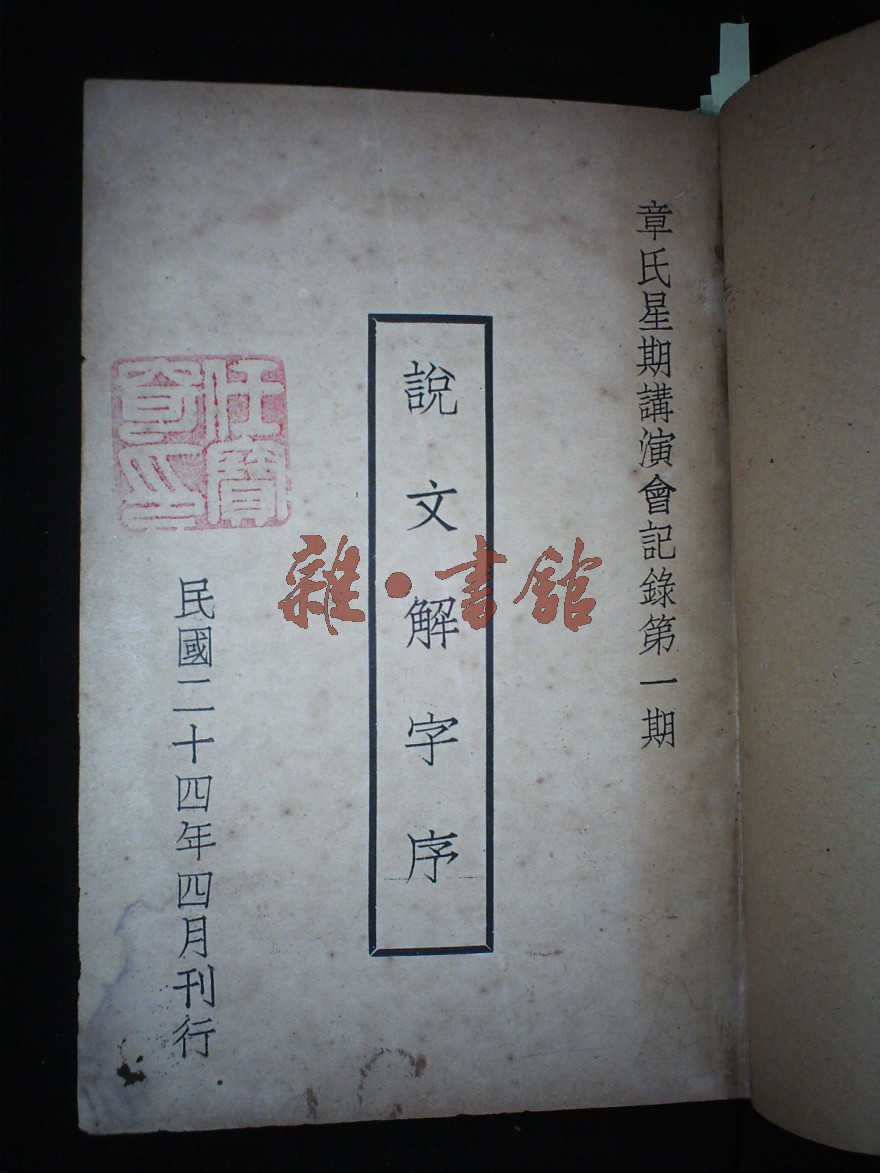 章氏星期講演會記錄第一期
說文解字序
民國二十四年四月刊行
雜·書館